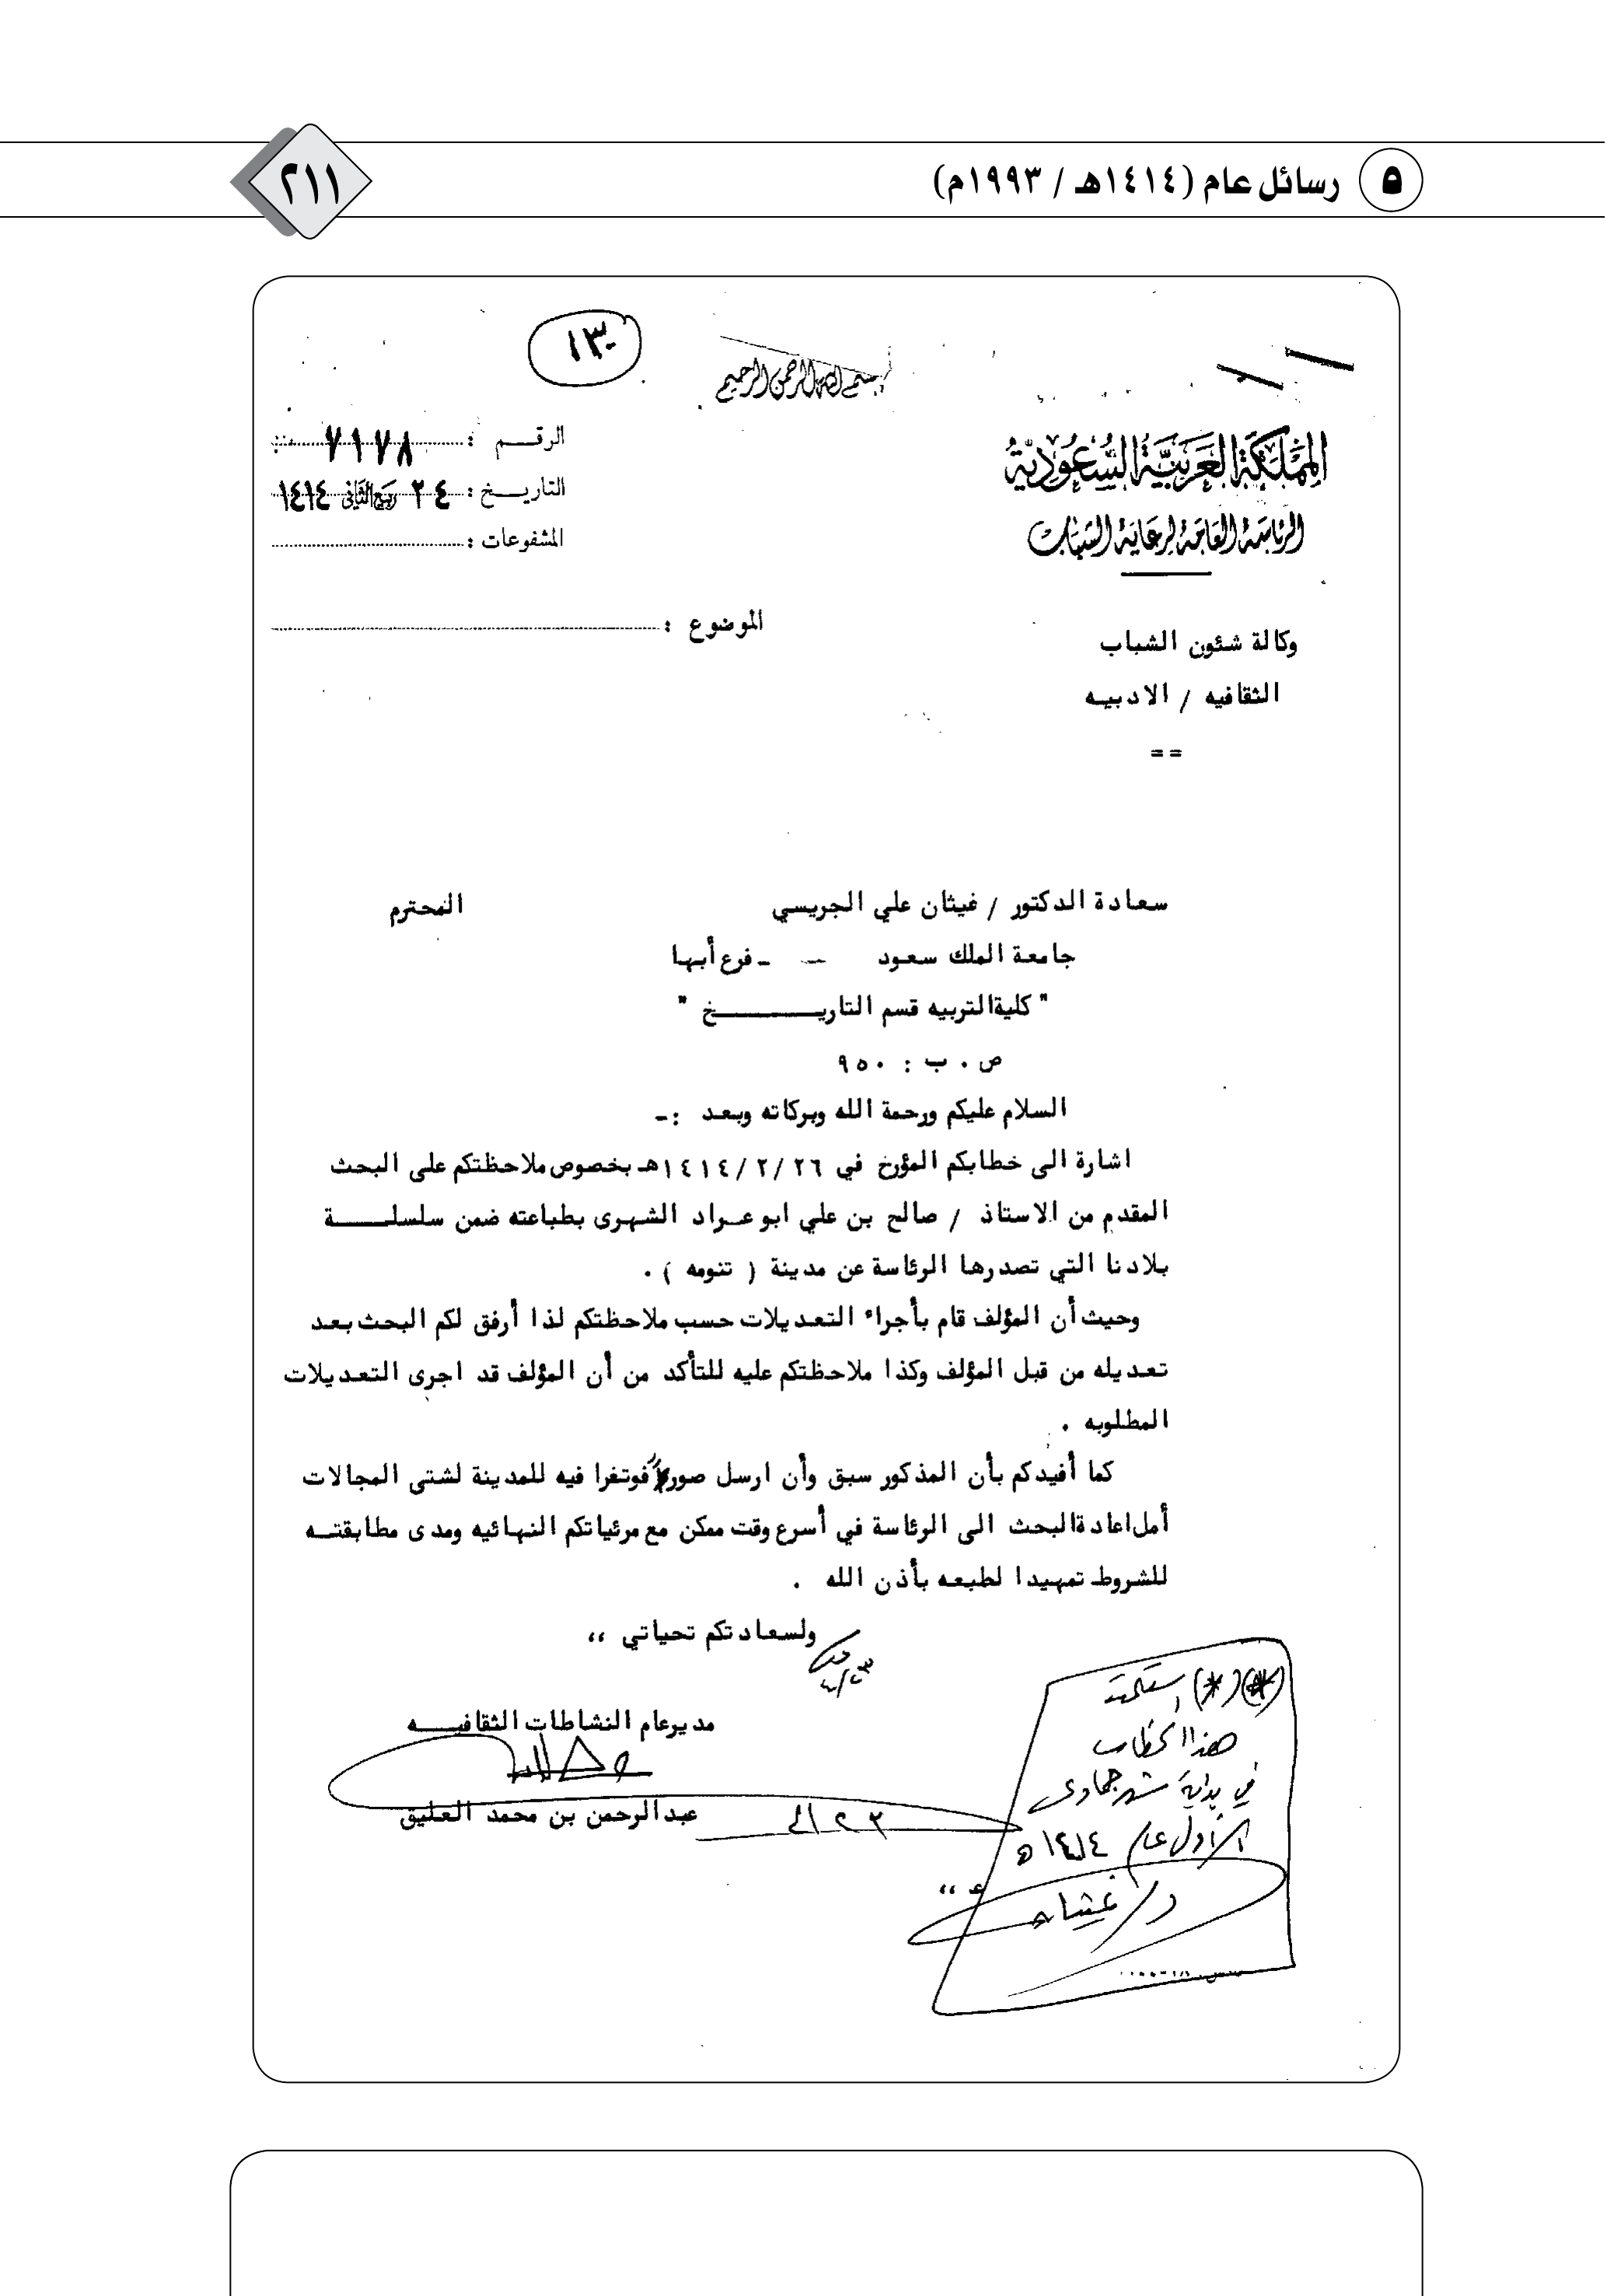 ٥ رسائل عام (١٤١٤هـ / ١٩٩٣م)
٢١١
١٣
بسم الله الرحمن الرحيم
المملكة العربية السعودية
الرئاسة العامة لرعاية الشباب
الرقــم : ٧١٧٨
التاريــخ : ٢٤ ربيع الثاني ١٤١٤
المشفوعات :
الموضوع :
وكالة شئون الشباب
الثقافيه / الادبيه
==
سعادة الدكتور / غيثان علي الجريسي المحترم
جامعة الملك سعود ـ فرع أبها
" كلية التربيه قسم التاريــــــخ "
ص . ب : ٩٥٠
السلام عليكم ورحمة الله وبركاته وبعد :ـ
اشارة الى خطابكم المؤرخ في ١٤١٤/٢/٢٦هـ بخصوص ملاحظتكم على البحث
المقدم من الاستاذ / صالح بن علي ابو عراد الشهرى بطباعته ضمن سلسلــــة
بلادنا التي تصدرها الرئاسة عن مدينة ( تنومه ) .
وحيث أن المؤلف قام بأجراء التعديلات حسب ملاحظتكم لذا أرفق لكم البحث بعد
تعديله من قبل المؤلف وكذا ملاحظتكم عليه للتأكد من أن المؤلف قد اجرى التعديلات
المطلوبه .
كما أفيدكم بأن المذكور سبق وأن ارسل صور فوتغرا فيه للمدينة لشتى المجالات
أمل اعادة البحث الى الرئاسة في أسرع وقت ممكن مع مرئياتكم النهائيه ومدى مطابقتــه
للشروط تمهيدا لطبعه بأذن الله .
ولسعادتكم تحياتي ،،
٤/٢٣
مدير عام النشاطات الثقافيــــه
عبدالرحمن بن محمد العليق
(*)(*) استلمت
هذا الخطاب
في بداية شهر جمادى
الأول عام ١٤١٤ه
د/ غيثان
ع ،،